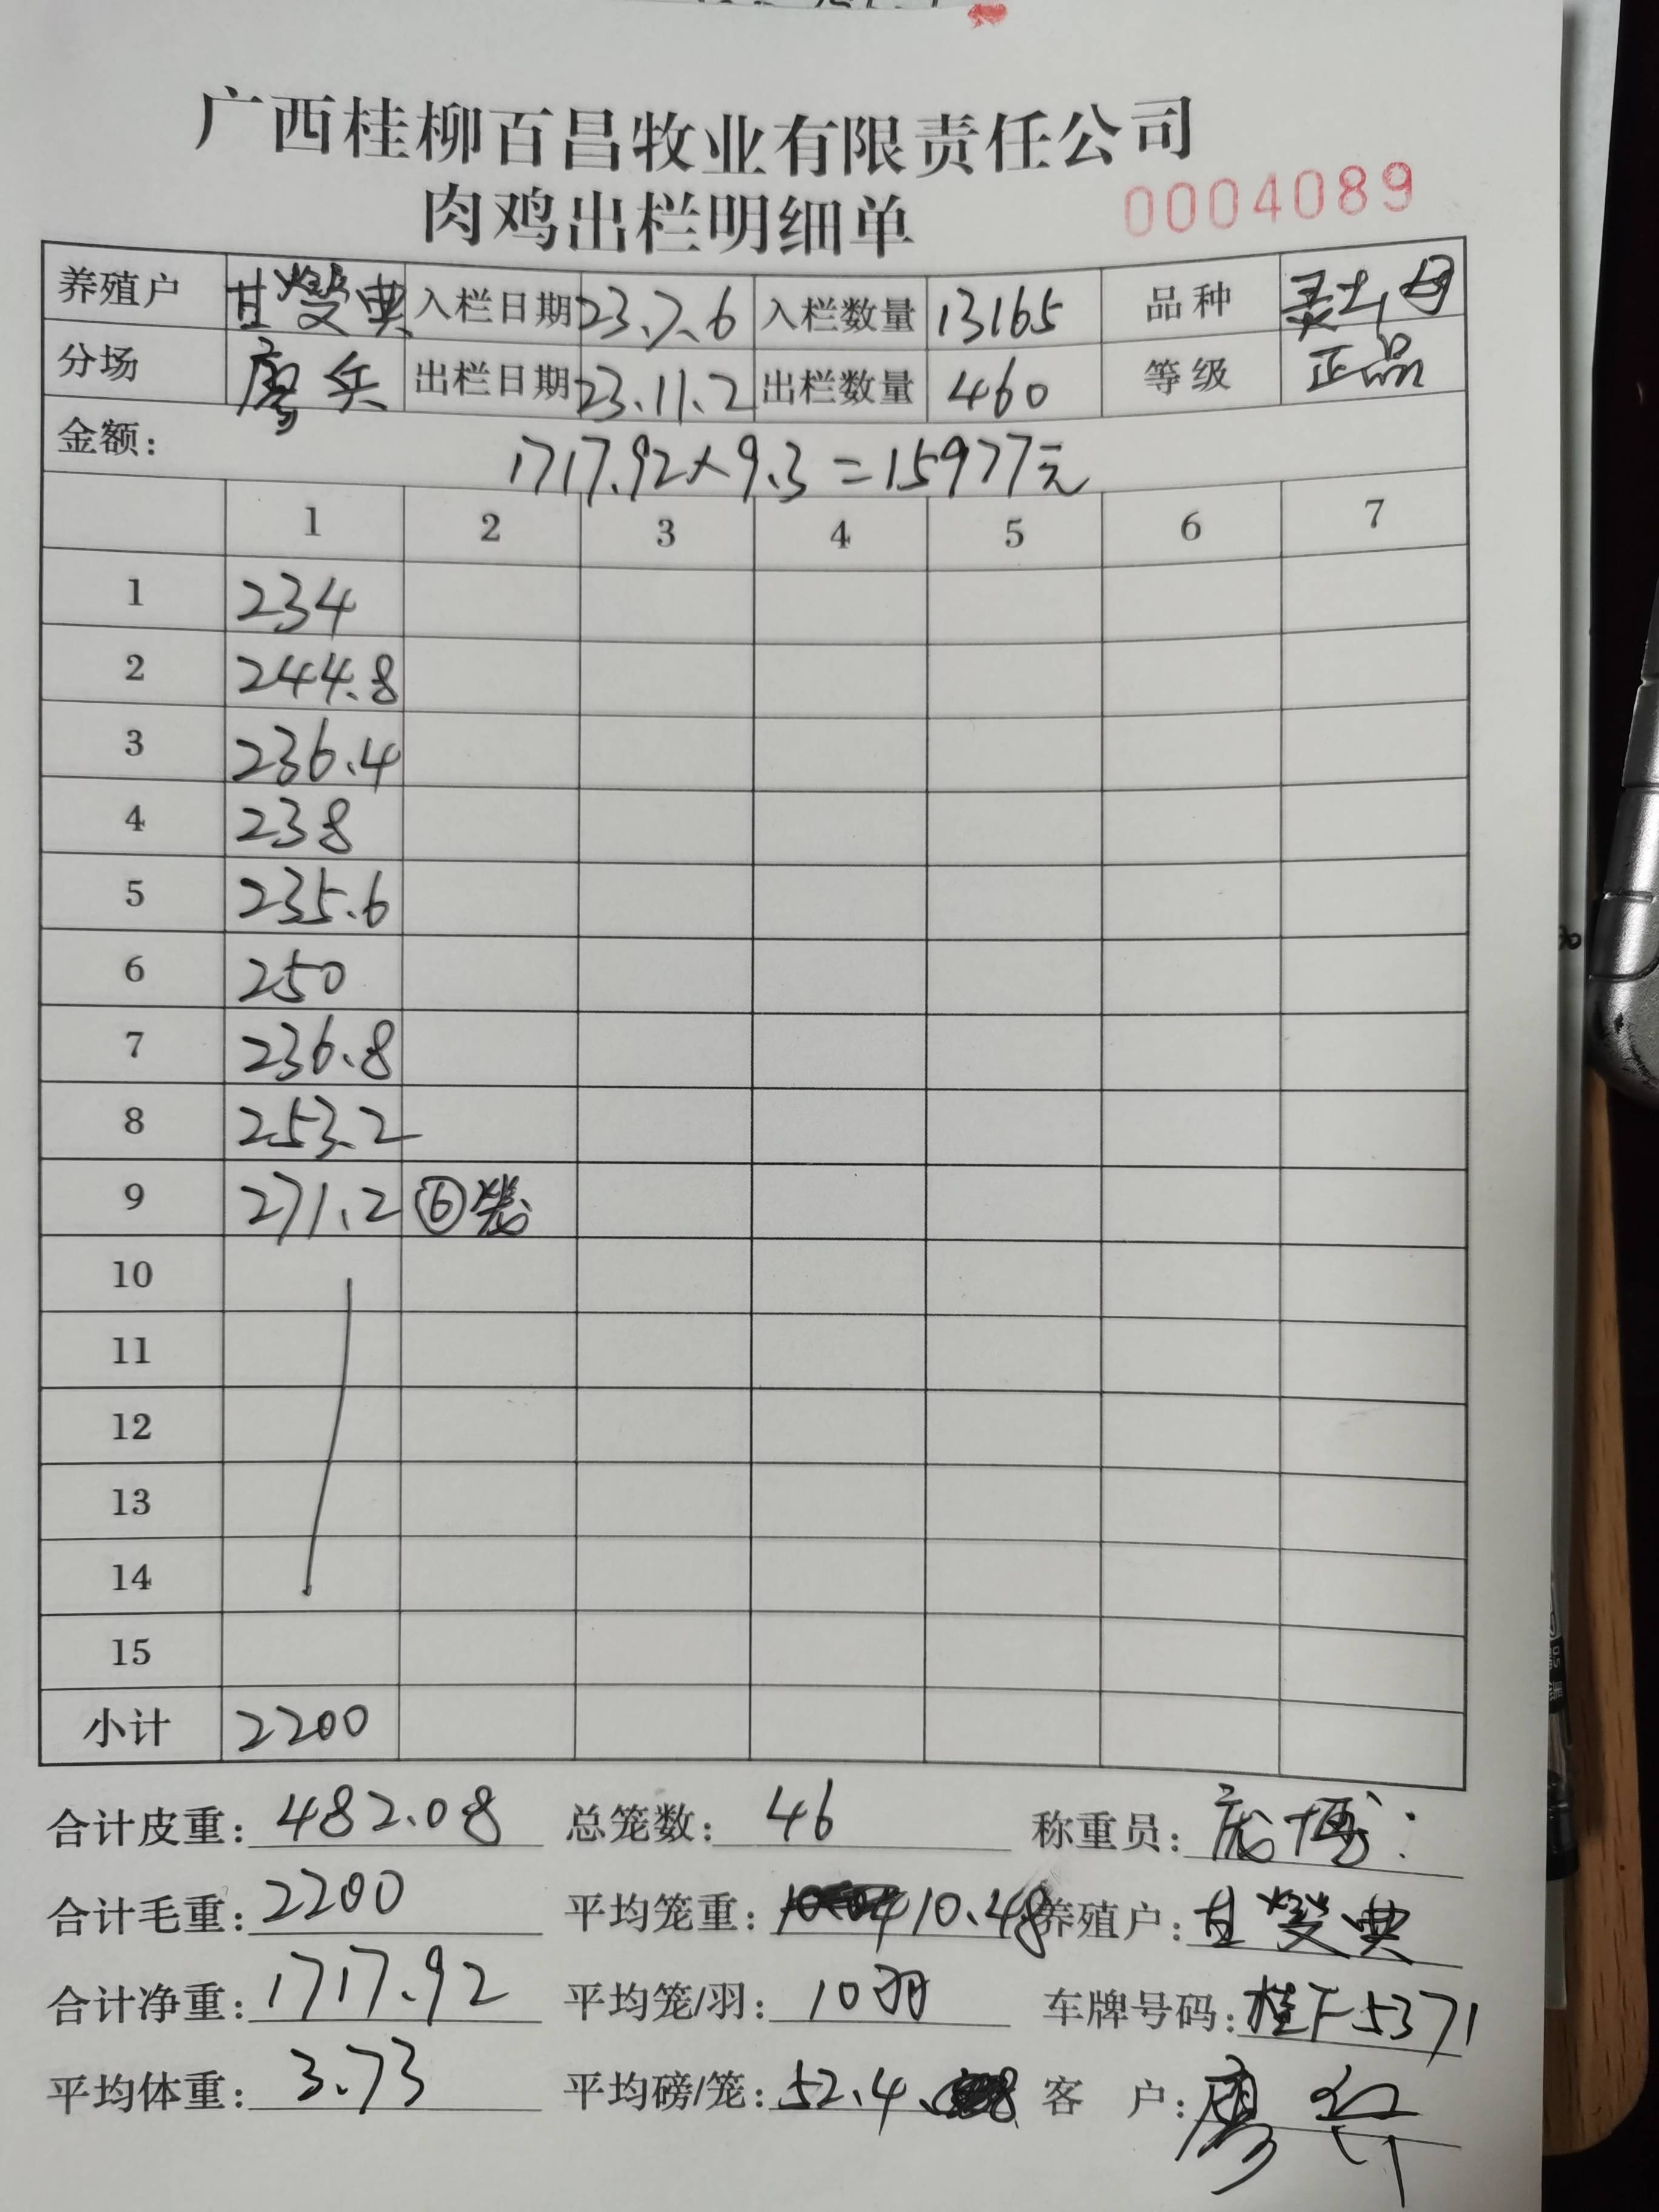 广西桂柳百昌牧业有限责任公司
肉鸡出栏明细单 0004089
养殖户 甘燮典 入栏日期 23.7.6 入栏数量 13165 品种
分场 廖兵 出栏日期 23.11.2 出栏数量 460 等级 正品
金额: 1717.92×9.3=15977元
1 2 3 4 5 6 7
1 234
2 244.8
3 236.4
4 238
5 235.6
6 250
7 236.8
8 253.2
9 271.2 ⑥笼
10
11
12
13
14
15
小计 2200
合计皮重: 482.08 总笼数: 46 称重员: 庞博
合计毛重: 2200 平均笼重: 10.48 养殖户: 甘燮典
合计净重: 1717.92 平均笼/羽: 10羽 车牌号码: 桂F5371
平均体重: 3.73 平均磅/笼: 52.4 客户: 廖